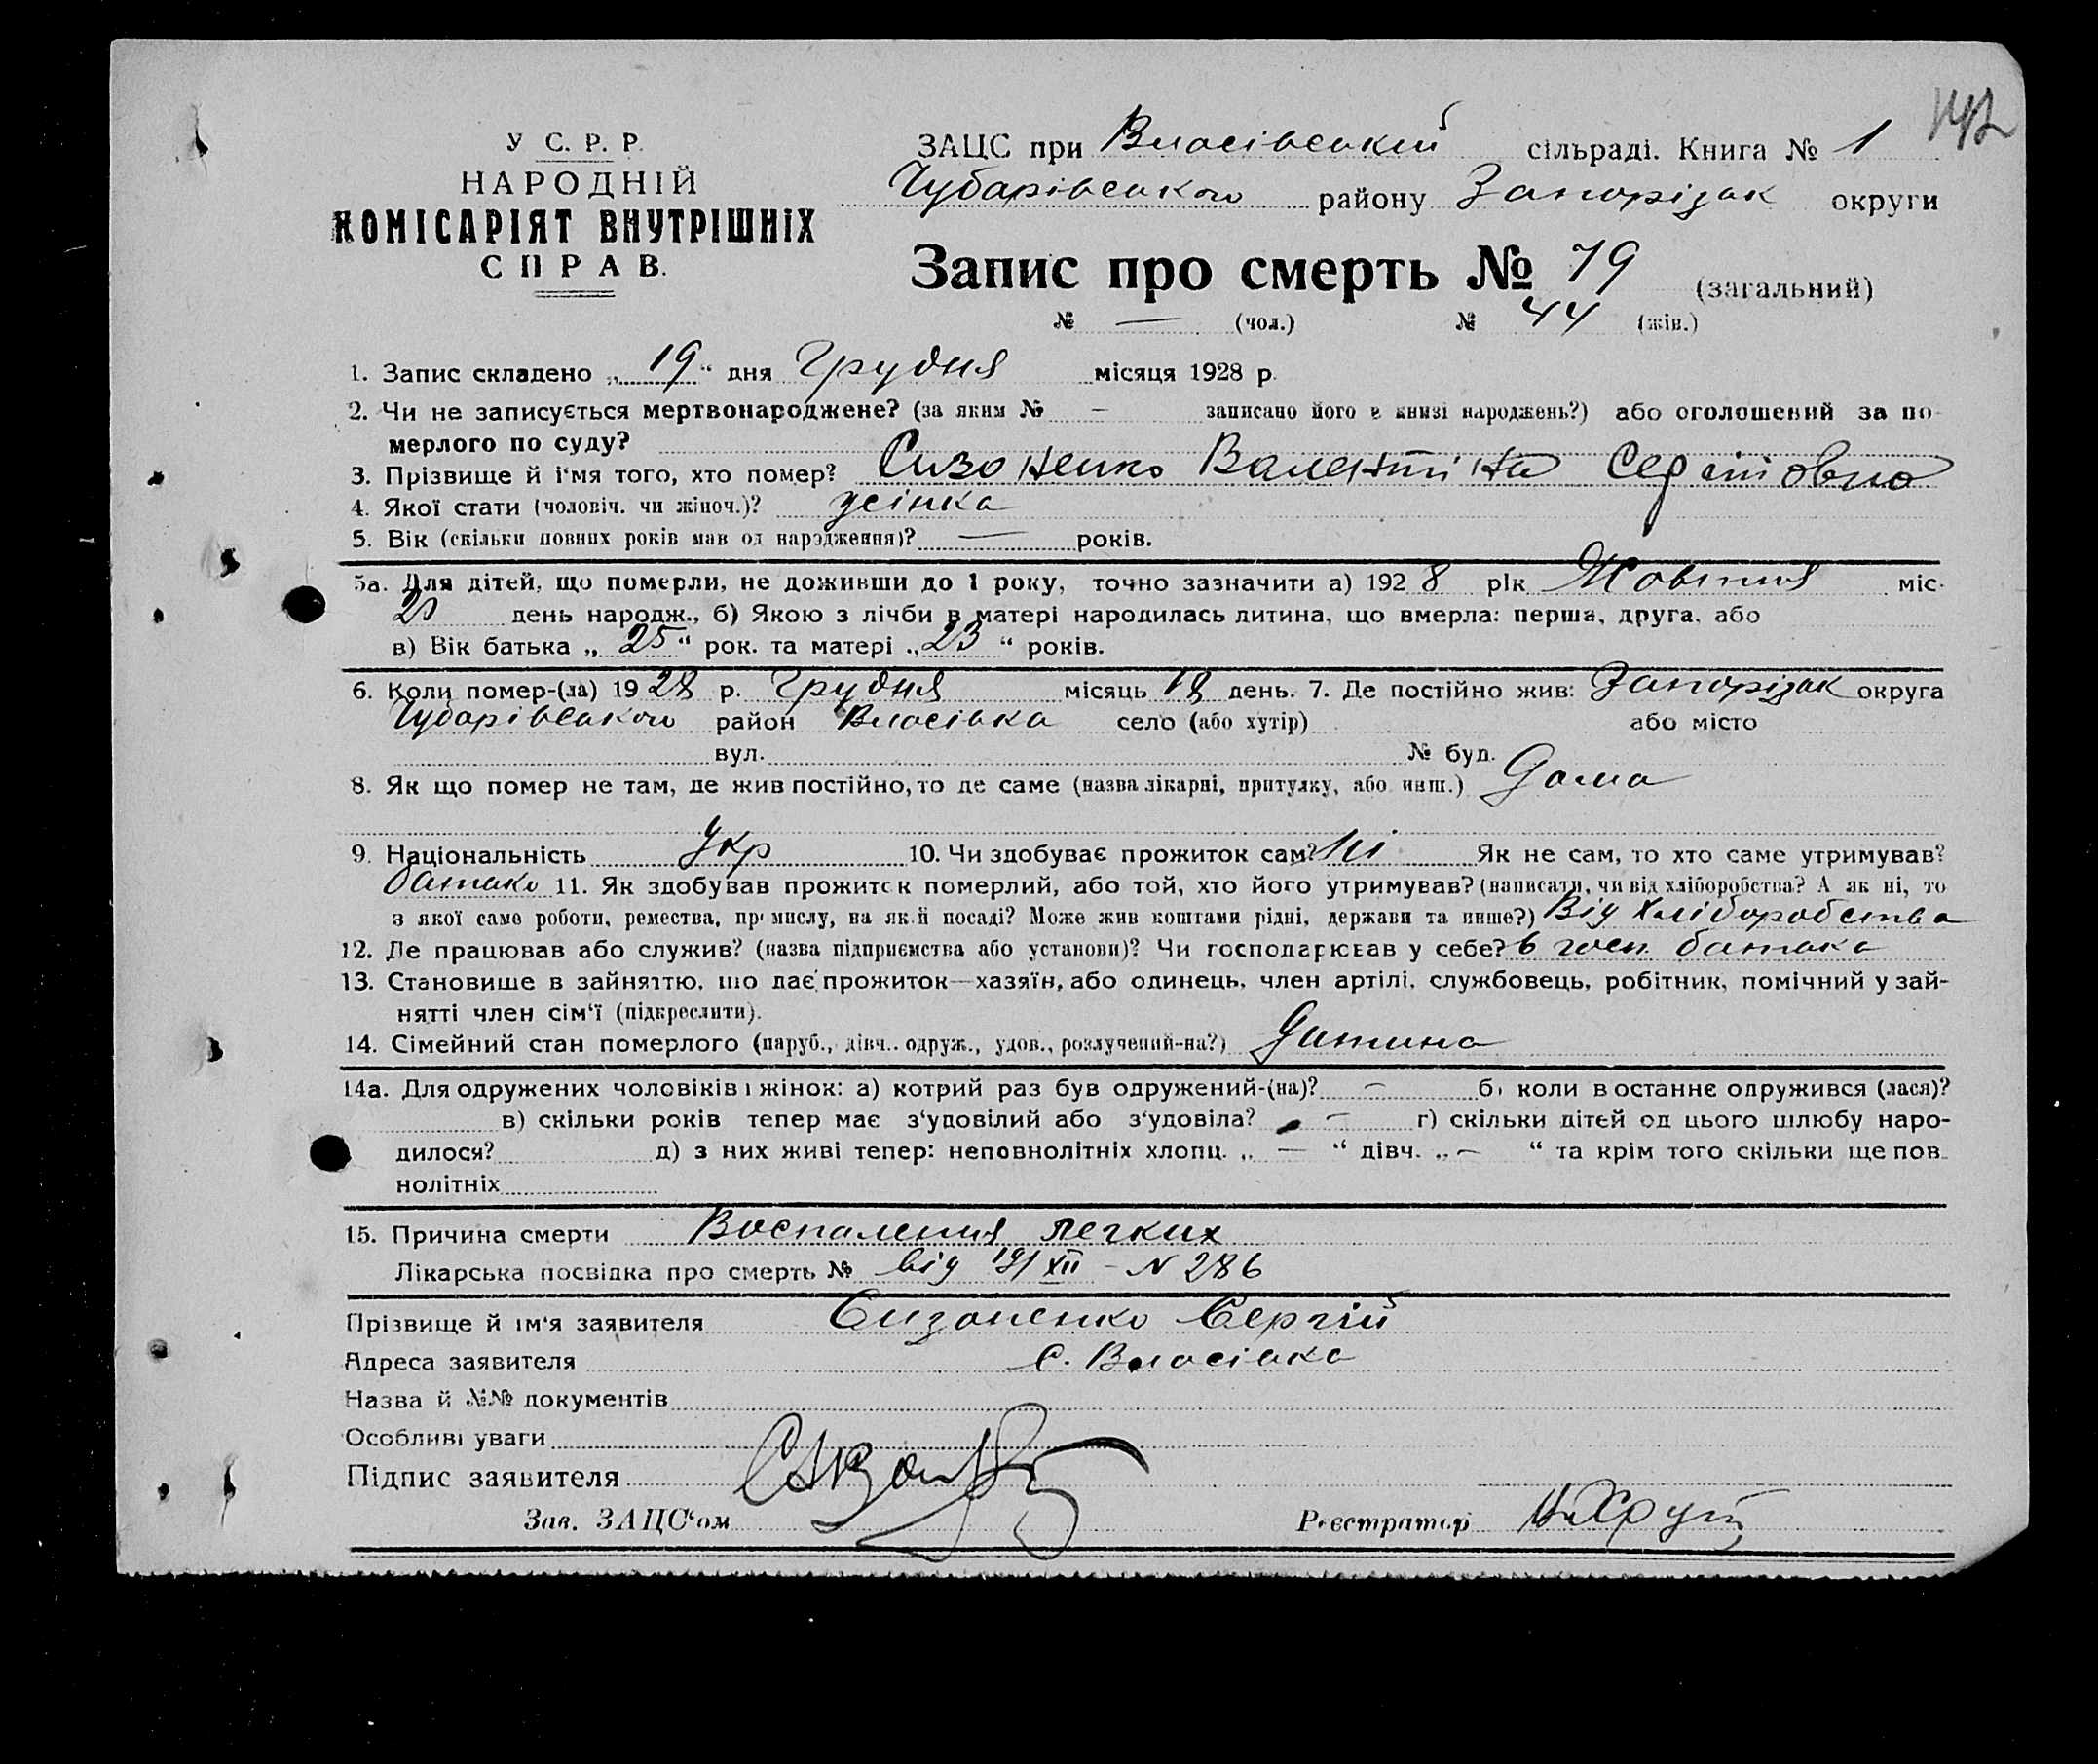 142
У С. Р. Р.
НАРОДНІЙ
КОМІСАРІЯТ ВНУТРІШНІХ
СПРАВ.
ЗАЦС при Власівській сільраді. Книга № 1
Чубарівського району Запорізьк округи
Запис про смерть № 79 (загальний)
№ — (чол.) № 44 (жін.)
1. Запис складено „19“ дня Грудня місяця 1928 р.
2. Чи не записується мертвонароджене? (за яким № – записано його в книзі народжень?) або оголошений за по-
мерлого по суду?
3. Прізвище й ім'я того, хто помер? Сизоненко Валентіна
4. Якої статі (чоловіч. чи жіноч.)? жінка
5. Вік (скільки повних років мав од народження)? — років.
5а. Для дітей, що померли, не доживши до 1 року, точно зазначити а) 1928 рік Жовтня міс.
день народж., б) Якою з лічби в матері народилась дитина, що вмерла: перша, друга, або
в) Вік батька „25“ рок. та матері „23“ років.
6. Коли помер-(ла) 1928 р. Грудня місяць 18 день. 7. Де постійно жив: Запорізьк округа
Чубарівського район Власівка село (або хутір) або місто
вул. № буд.
8. Як що помер не там, де жив постійно, то де саме (назва лікарні, притулку, або инш.) Дома
9. Національність Укр 10. Чи здобуває прожиток сам? Ні Як не сам, то хто саме утримував?
батько 11. Як здобував прожиток померлий, або той, хто його утримував? (написати, чи від хліборобства? А як ні, то
з якої саме роботи, ремества, промислу, на якій посаді? Може жив коштами рідні, держави та инше?) Від хліборобства
12. Де працював або служив? (назва підприємства або установи)? Чи господарював у себе? в госп. батька
13. Становище в зайняттю, що дає прожиток—хазяїн, або одинець, член артілі, службовець, робітник, помічний у зай-
нятті член сім'ї (підкреслити).
14. Сімейний стан померлого (паруб., дівч., одруж., удов., розлучений-на?) Дитина
14а. Для одружених чоловіків і жінок: а) котрий раз був одружений-(на)? – б) коли в останнє одружився (лася)?
в) скільки років тепер має з'удовілий або з'удовіла? – г) скільки дітей од цього шлюбу наро-
дилося? д) з них живі тепер: неповнолітніх хлопц. „ — “ дівч. „ – “ та крім того скільки ще пов-
нолітніх
15. Причина смерти Воспаления легких
Лікарська посвідка про смерть № від 19/XII - N 286
Прізвище й ім'я заявителя Сизоненко Сергій
Адреса заявителя с. Власівка
Назва й №№ документів
Особливі уваги
Підпис заявителя
Зав. ЗАЦС'ом Реєстратор